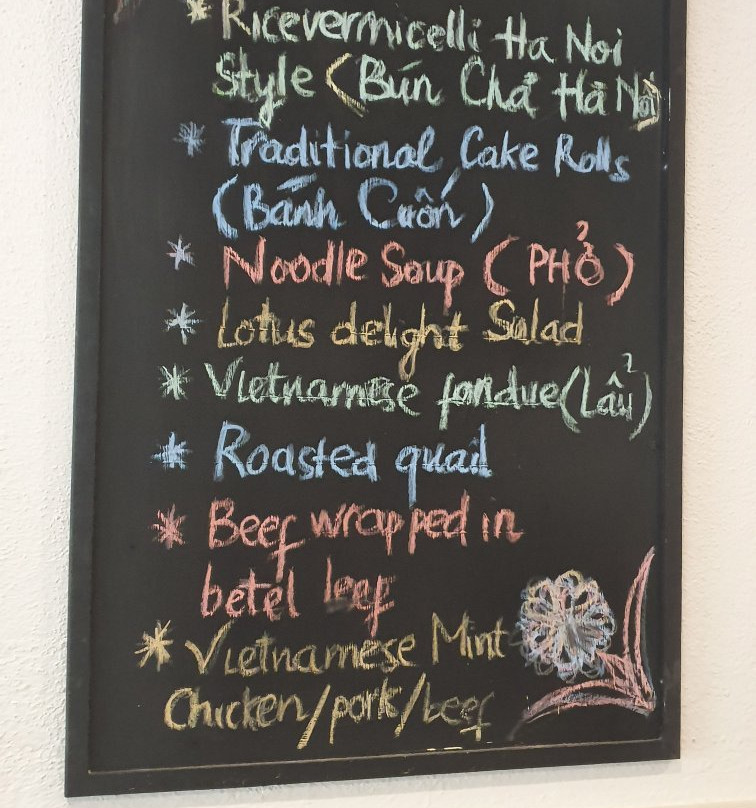 * Ricevermicelli Ha Noi
Style (Bún Chả Hà Nội)
* Traditional Cake Rolls
(Bánh Cuốn)
* Noodle Soup (PHỞ)
* Lotus delight Salad
* Vietnamese fondue (Lẩu)
* Roasted quail
* Beef wrapped in
betel leef
* Vietnamese Mint
Chicken/pork/beef